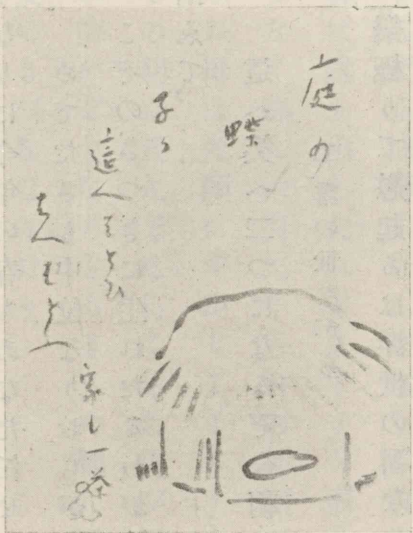 庭の
蝶
子が
這へばとび
はへばとぶ
一茶